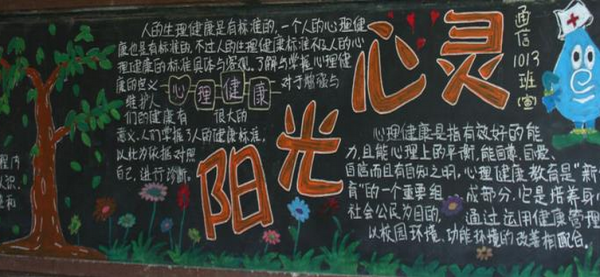 人的生理健康是有标准的,一个人的心理健
康也是有标准的,不过人的生理健康标准不及人的心
理健康的标准具体与客观,了解与掌握心理健
康的意义 对于增强与
心理健康
维护人
们的健康有 很大的
意义,人们掌握了人的健康标准,
以此为依据对照
自己,进行诊断.
阳光心灵
通信1013班
心理健康是指有效好的能
力,且能心理上的平衡,能自尊、自爱、
自信而且有自知之明,心理健康教育是"新
育"的一个重要组 成部分,它是培养身
社会公民为目的 通过运用健康管理
以校园环境、功能环境的改善相配合.